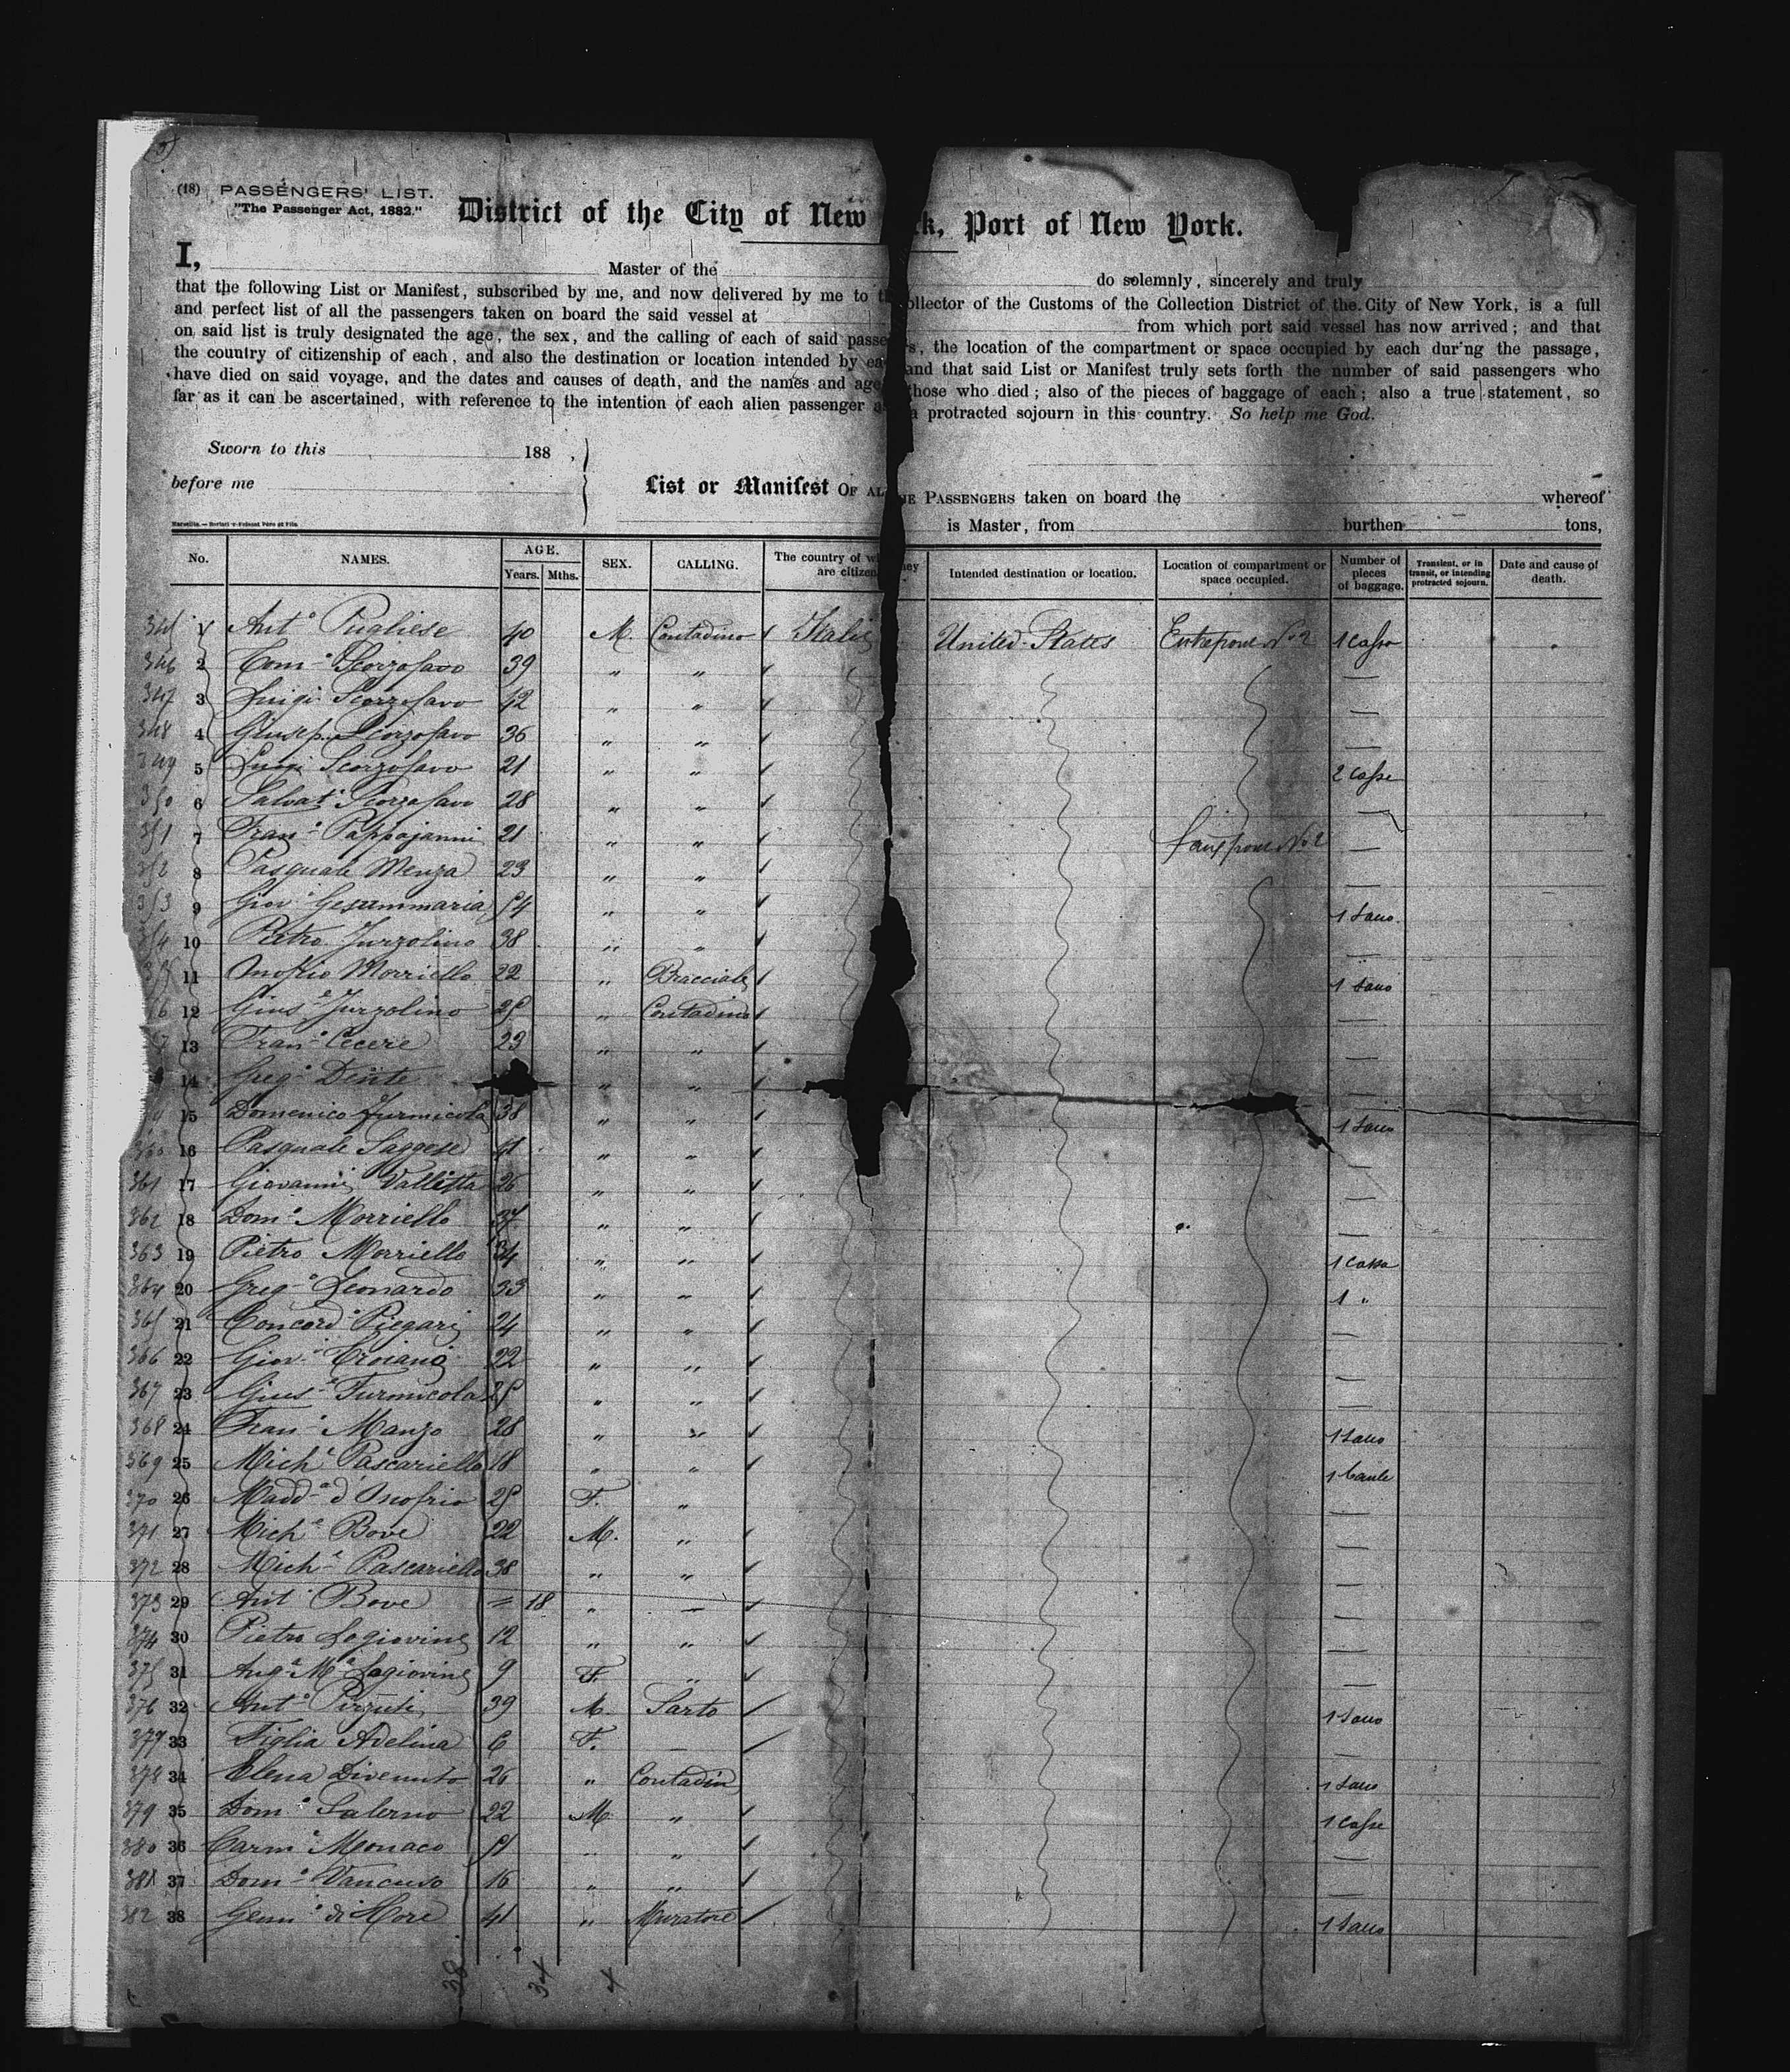 (18) PASSENGERS' LIST.
"The Passenger Act, 1882."
District of the City of New rk, Port of New York.
I, Master of the do solemnly, sincerely and truly
that the following List or Manifest, subscribed by me, and now delivered by me to ollector of the Customs of the Collection District of the City of New York, is a full
and perfect list of all the passengers taken on board the said vessel at from which port said vessel has now arrived; and that
on said list is truly designated the age, the sex, and the calling of each of said passe s, the location of the compartment or space occupied by each dur'ng the passage,
the country of citizenship of each, and also the destination or location intended by ea and that said List or Manifest truly sets forth the number of said passengers who
have died on said voyage, and the dates and causes of death, and the names and age hose who died; also of the pieces of baggage of each; also a true statement, so
far as it can be ascertained, with reference to the intention of each alien passenger a protracted sojourn in this country. So help me God.
Sworn to this 188 ,
before me
List or Manifest OF AL HE PASSENGERS taken on board the whereof
is Master, from burthen tons,
No. NAMES. AGE. Years. Mths. SEX. CALLING. The country of w hey are citizen Intended destination or location. Location of compartment or space occupied. Number of pieces of baggage. Transient, or in transit, or intending protracted sojourn. Date and cause of death.
345 1 Anto Pugliese 40 M. Contadino Italie United-States Entrepont No 2 1 Casse
346 2 Tom Scorzofavo 39 " "
347 3 Luigi Scorzofavo 42 " "
348 4 Giusep. Scorzofavo 36 " "
349 5 Luigi Scorzofavo 21 " " 2 Casse
350 6 Salvat Scorzofavo 28 " "
351 7 Frano Pappajanni 21 " " No 2
352 8 Pasquale Menza 23 " "
353 9 Giov Gesummaria 54 " " 1 Sacco
10 Pietro Jurzolino 38 " "
11 Onofrio Morriello 22 " Bracciale 1 Sacco
12 Gius Jurzolino 25 " Contadino
13 Frano Cecere 23 " "
14 Grego Dente " "
15 Domenico Furmicola 38 " " 1 Sacco
360 16 Pasquale Saggese 41 " "
361 17 Giovanni Valletta 26 " "
362 18 Domo Morriello 37 " "
363 19 Pietro Morriello 34 " " 1 Cassa
364 20 Grego Leonardo 33 " " 1 "
365 21 Concord Piegari 24 " "
366 22 Giov Troiano 22 " "
367 23 Gius Furmicola 25 " "
368 24 Frano Manzo 28 " " 1 Sacco
369 25 Miche Pascariello 18 " "
370 26 Madda d'Onofrio 25 F. "
371 27 Miche Bove 22 M. "
372 28 Miche Pascariello 38 " "
373 29 Ant Bove = 18 " —
374 30 Pietro Logiovine 12 " "
375 31 Anga Ma Logiovine 9 F. "
376 32 Anto Pizzuti 39 M. Sarto 1 Sacco
377 33 Figlia Adelina 6 F. —
378 34 Elena Divenuto 26 " Contadin 1 Sacco
379 35 Domo Salerno 22 M. " 1 Casse
380 36 Carmo Monaco 51 " "
381 37 Domo Vancuso 16 " "
382 38 Genn di Fiore 41 " Muratore 1 Sacco
38 34 4